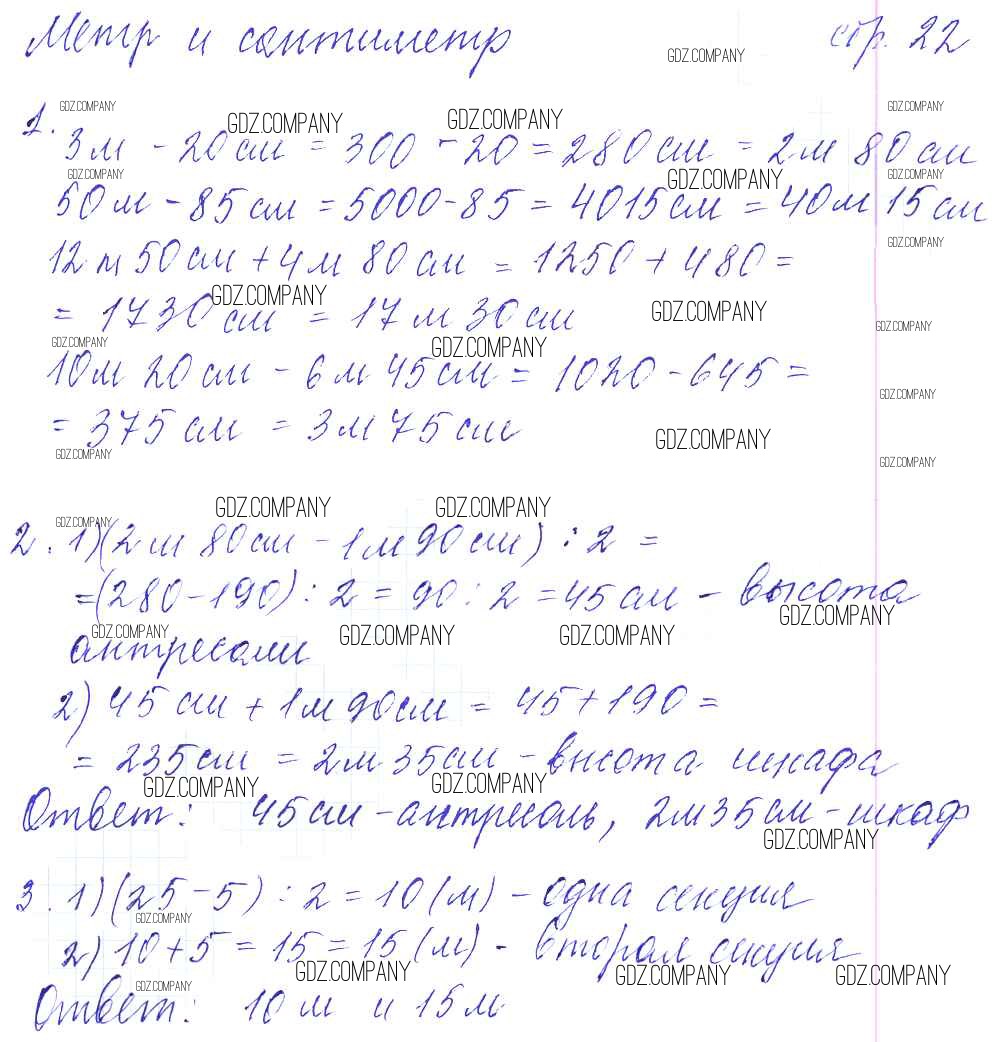 Метр и сантиметр стр. 22
1.
3м - 20см = 300 - 20 = 280см = 2м 80см
50м - 85см = 5000-85 = 4015см = 40м 15см
12м 50см + 4м 80см = 1250 + 480 =
= 1730см = 17м 30см
10м 20см - 6м 45см = 1020 - 645 =
= 375см = 3м 75см
2. 1)(2м 80см - 1м 90см) : 2 =
=(280-190) : 2 = 90 : 2 = 45см - высота
антресоли
2) 45см + 1м 90см = 45+190 =
= 235см = 2м 35см - высота шкафа
Ответ: 45см - антресоль, 2м35см - шкаф
3. 1)(25-5) : 2 = 10(м) - одна секция
2) 10+5 = 15 = 15(м) - вторая секция
Ответ: 10м и 15м
GDZ.COMPANY